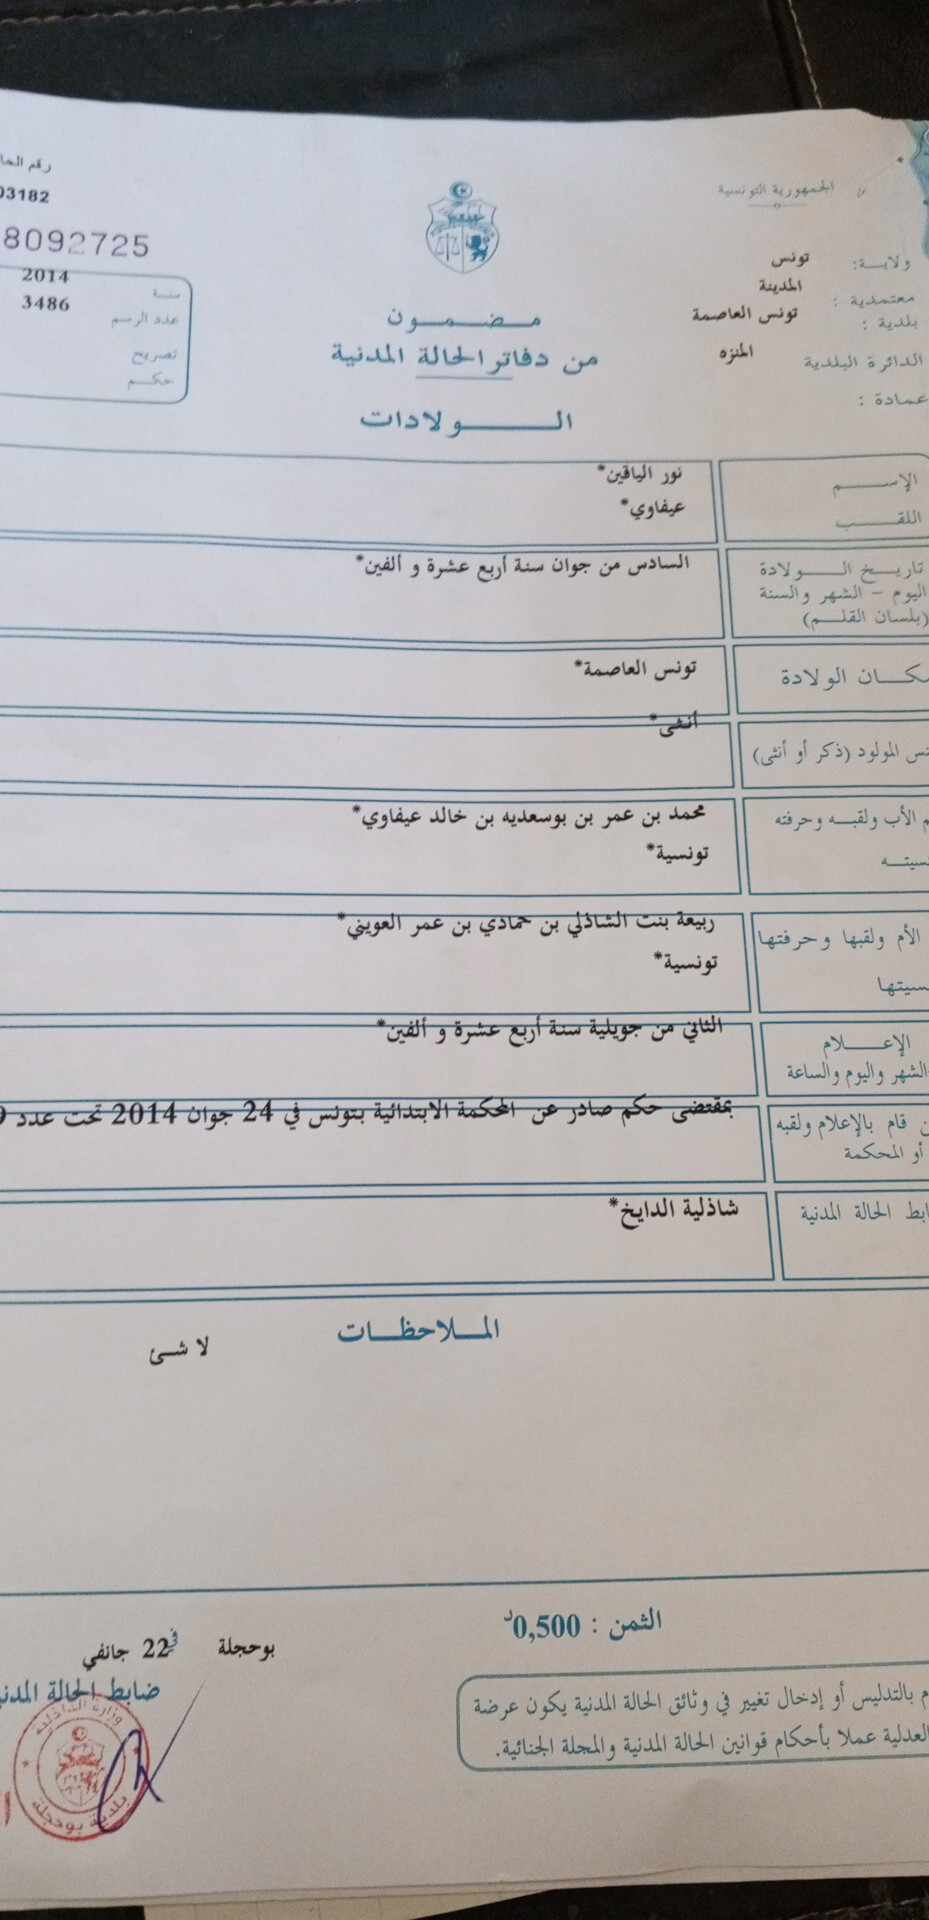 الجمهورية التونسية
رقم الحا
03182
8092725
ولايـة: تونس
معتمدية : المدينة
بلدية : تونس العاصمة
الدائرة البلدية المنزه
عمادة :
سنة 2014
عدد الرسم 3486
تصريح
حكم
مضمون
من دفاتر الحالة المدنية
الولادات
الإسم نور الياقين*
اللقب عيفاوي*
تاريخ الولادة السادس من جوان سنة أربع عشرة و ألفين*
اليوم - الشهر والسنة
(بلسان القلم)
كان الولادة تونس العاصمة*
نس المولود (ذكر أو أنثى) أنثى*
م الأب ولقبه وحرفته محمد بن عمر بن بوسعديه بن خالد عيفاوي*
سيته تونسية*
الأم ولقبها وحرفتها ربيعة بنت الشاذلي بن حمادي بن عمر العويني*
سيتها تونسية*
الإعلام الثاني من جويلية سنة أربع عشرة و ألفين*
الشهر واليوم والساعة
ن قام بالإعلام ولقبه بمقتضى حكم صادر عن المحكمة الابتدائية بتونس في 24 جوان 2014 تحت عدد 9
أو المحكمة
ابط الحالة المدنية شاذلية الدايخ*
الملاحظات
لا شئ
الثمن : 0,500د
بوحجلة في 22 جانفي
ضابط الحالة المدني
وزارة الداخلية
بلدية بوحجلة
م بالتدليس أو إدخال تغيير في وثائق الحالة المدنية يكون عرضة
العدلية عملا بأحكام قوانين الحالة المدنية والمجلة الجنائية.